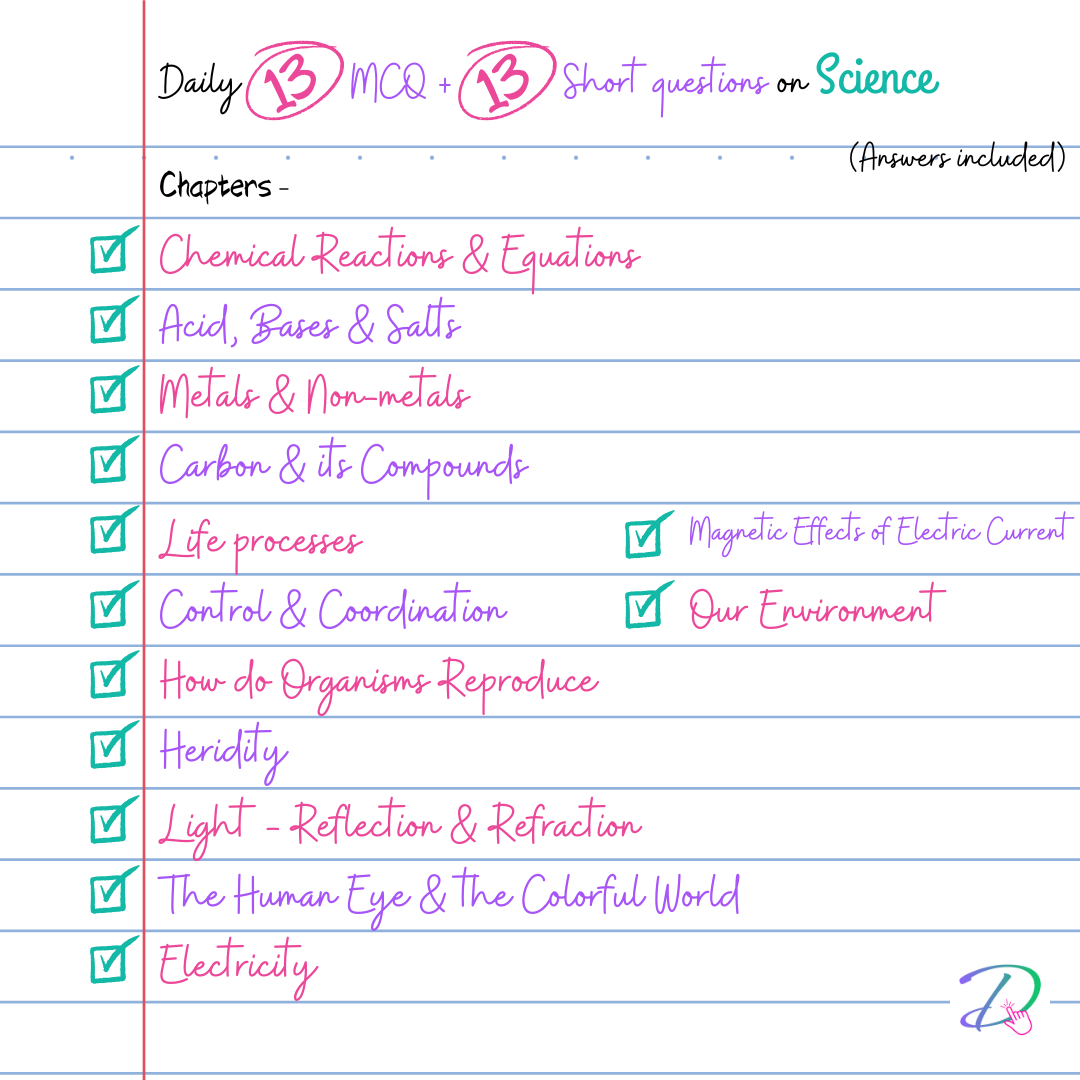 Daily 13 MCQ + 13 Short questions on Science
(Answers included)
Chapters -
Chemical Reactions & Equations
Acid, Bases & Salts
Metals & Non-metals
Carbon & its Compounds
Life processes
Control & Coordination
How do Organisms Reproduce
Heridity
Light - Reflection & Refraction
The Human Eye & the Colorful World
Electricity
Magnetic Effects of Electric Current
Our Environment
D